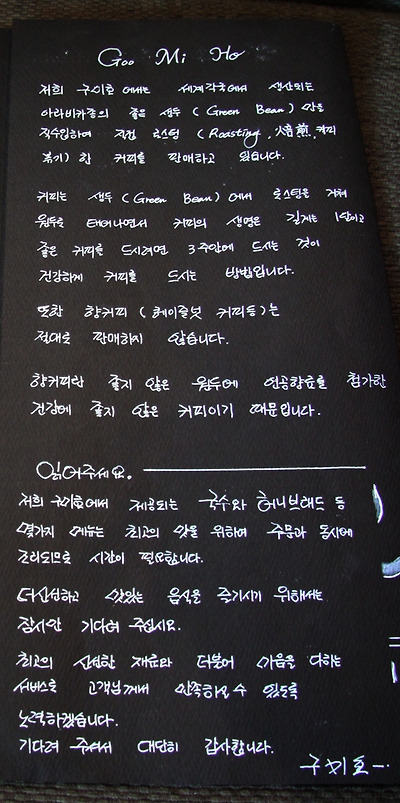 Goo Mi Ho
저희 구미호 에서는 세계각국에서 생산되는
아라비카종의 좋은 생두 (Green Bean) 만을
직수입하여 직접 로스팅 (Roasting, 焙煎, 커피
볶기) 한 커피를 판매하고 있습니다.
커피는 생두 (Green Bean) 에서 로스팅을 거쳐
원두로 태어나면서 커피의 생명은 길게는 1년이고
좋은 커피를 드시려면 3주안에 드시는 것이
건강하게 커피를 드시는 방법입니다.
또한 향커피 (헤이즐넛 커피등)는
절대로 판매하지 않습니다.
향커피란 좋지 않은 원두에 인공향료를 첨가한
건강에 좋지 않은 커피이기 때문입니다.
읽어주세요.
저희 구미호에서 제공되는 국수와 허니브래드 등
몇가지 메뉴는 최고의 맛을 위하여 주문과 동시에
조리되므로 시간이 필요합니다.
더신선하고 맛있는 음식을 즐기시기 위해서는
잠시만 기다려 주십시요.
최고의 신선한 재료와 더불어 마음을 다하는
서비스로 고객님께서 만족하실수 있도록
노력하겠습니다.
기다려 주셔서 대단히 감사합니다.
구미호